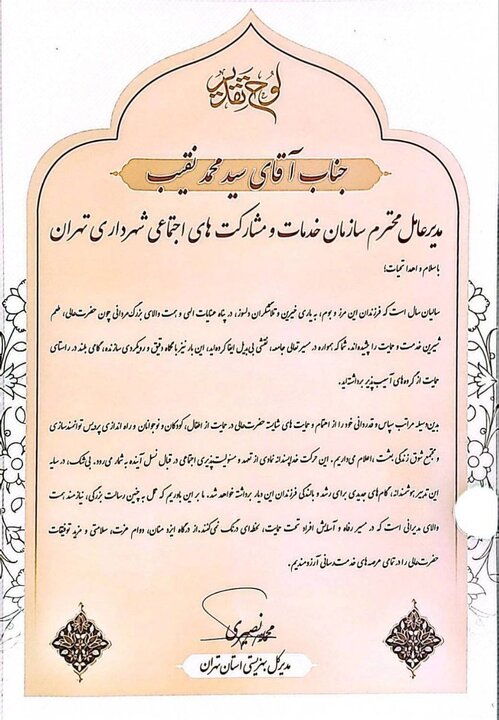 لوح تقدیر
جناب آقای سید محمد نقیب
مدیرعامل محترم سازمان خدمات و مشارکت های اجتماعی شهرداری تهران
با سلام و اهدا تحیات؛
سالیان سال است که فرزندان این مرز و بوم، به یاری خیرین و تلاشگران دلسوز، در پناه عنایات الهی و همت والای بزرگ مردانی چون حضرت‌عالی، طعم
شیرین خدمت و حمایت را چشیده‌اند. شما که همواره در مسیر تعالی جامعه، نقشی بی‌بدیل ایفا کرده‌اید، این بار نیز با نگاه دقیق و رویکردی سازنده، گامی بلند در راستای
حمایت از گروه‌های آسیب‌پذیر برداشته‌اید.
بدین وسیله مراتب سپاس و قدردانی خود را از اهتمام و حمایت های شایسته حضرت‌عالی در حمایت از اطفال، کودکان و نوجوانان و راه اندازی پردیس توانمندسازی
و مجتمع شوق زندگی بعثت، اعلام می‌داریم. این حرکت خداپسندانه نمادی از تعهد و مسئولیت‌پذیری اجتماعی در قبال نسل آینده به شمار می‌رود. بی‌شک، در سایه
این تدبیر هوشمندانه، گام‌های جدیدی برای رشد و بالندگی فرزندان این دیار برداشته خواهد شد. ما بر این باوریم که عمل به چنین رسالت بزرگی، نیازمند همت
والای مدیرانی است که در مسیر رفاه و آسایش افراد تحت حمایت، لحظه‌ای درنگ نمی‌کنند. از درگاه ایزد منان، دوام عزت، سلامتی و مزید توفیقات
حضرت‌عالی را در تمامی عرصه‌های خدمت‌رسانی آرزومندیم.
محمد نصیری
مدیرکل بهزیستی استان تهران